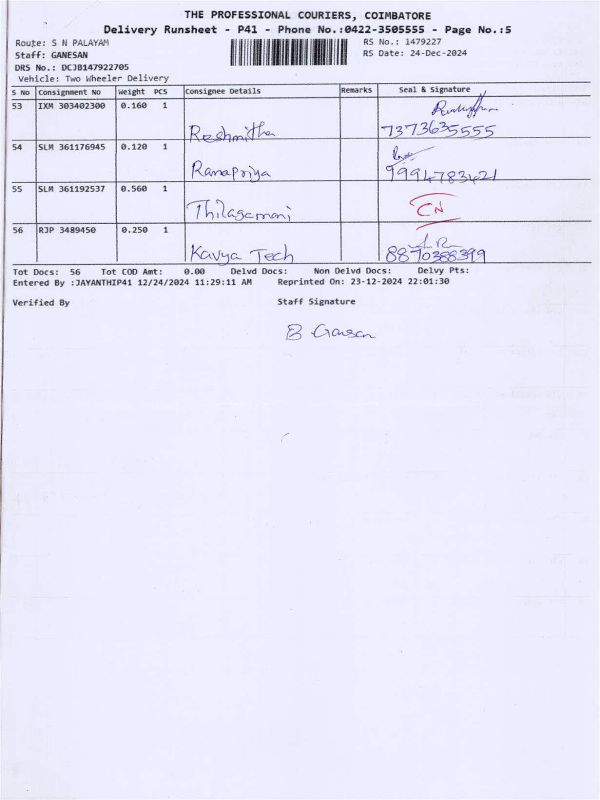 THE PROFESSIONAL COURIERS, COIMBATORE
Delivery Runsheet - P41 - Phone No.:0422-3505555 - Page No.:5
Route: S N PALAYAM
RS No.: 1479227
Staff: GANESAN
RS Date: 24-Dec-2024
DRS No.: DCJB147922705
Vehicle: Two Wheeler Delivery
S No Consignment No Weight PCS Consignee Details Remarks Seal & Signature
53 IXM 303402300 0.160 1
Reshmitha 7373635555
54 SLM 361176945 0.120 1
Ramapriya 9994783421
55 SLM 361192537 0.560 1
Thilagamani CN
56 RJP 3489450 0.250 1
Kavya Tech 8870388399
Tot Docs: 56 Tot COD Amt: 0.00 Delvd Docs: Non Delvd Docs: Delvy Pts:
Entered By :JAYANTHIP41 12/24/2024 11:29:11 AM Reprinted On: 23-12-2024 22:01:30
Verified By Staff Signature